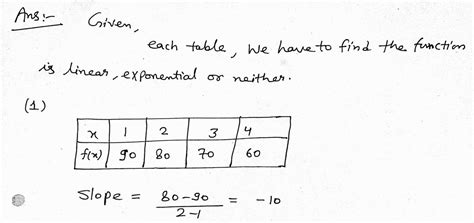 Ans:- Given,
each table, we have to find the function
is linear, exponential or neither.
(1)
x 1 2 3 4
f(x) 90 80 70 60
Slope = 80-90 / 2-1 = -10